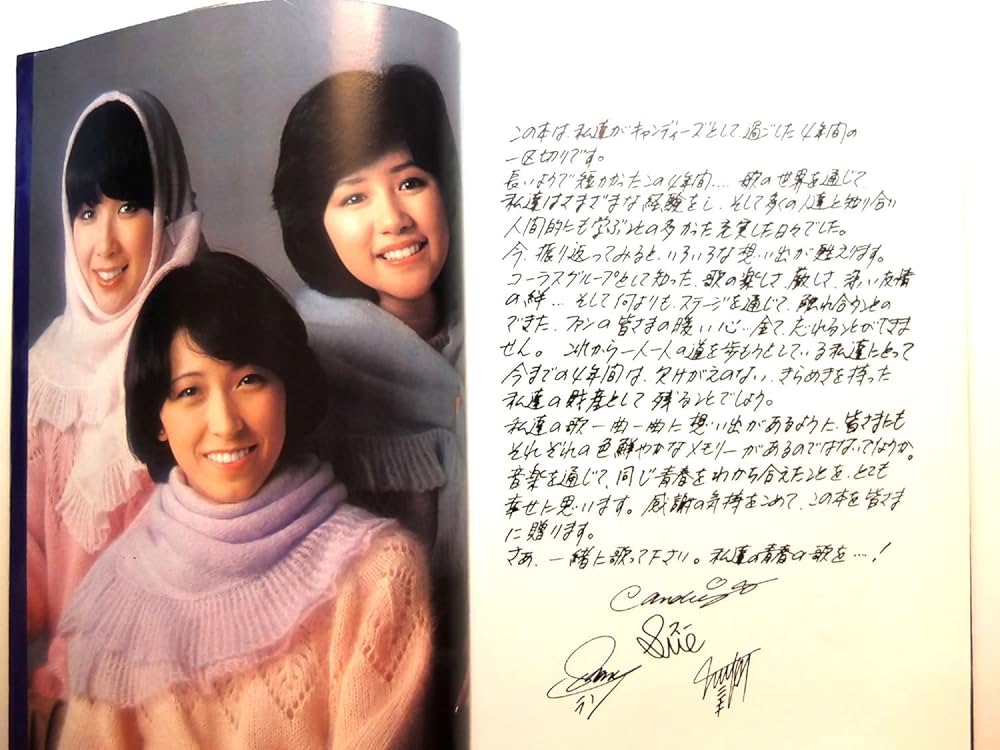 この本は、私達がキャンディーズとして過ごした4年間の
一区切りです。
長いようで短かかったこの4年間.... 歌の世界を通じて
私達はさまざまな経験をし、そして多くの人達と知り合い
人間的にも学ぶことの多かった充実した日々でした。
今、振り返ってみると、いろいろな想い出が甦えります。
コーラスグループとして知った、歌の楽しさ、厳しさ、深い友情
の絆... そして何よりも、ステージを通じて、触れ合うことの
できた、ファンの皆さまの暖い心...全て、忘れることができま
せん。これから一人一人の道を歩もうとしている私達にとって
今までの4年間は、欠けがえのない、きらめきを持った
私達の財産として残ることでしょう。
私達の歌一曲一曲に想い出があるように、皆さまにも
それぞれの色鮮やかなメモリーがあるのではないでしょうか。
音楽を通じて、同じ青春をわかち合えたことを、とても
幸せに思います。感謝の気持をこめて、この本を皆さま
に贈ります。
さあ、一緒に歌って下さい。私達の青春の歌を....!
Candies
スー
Sue
ラン